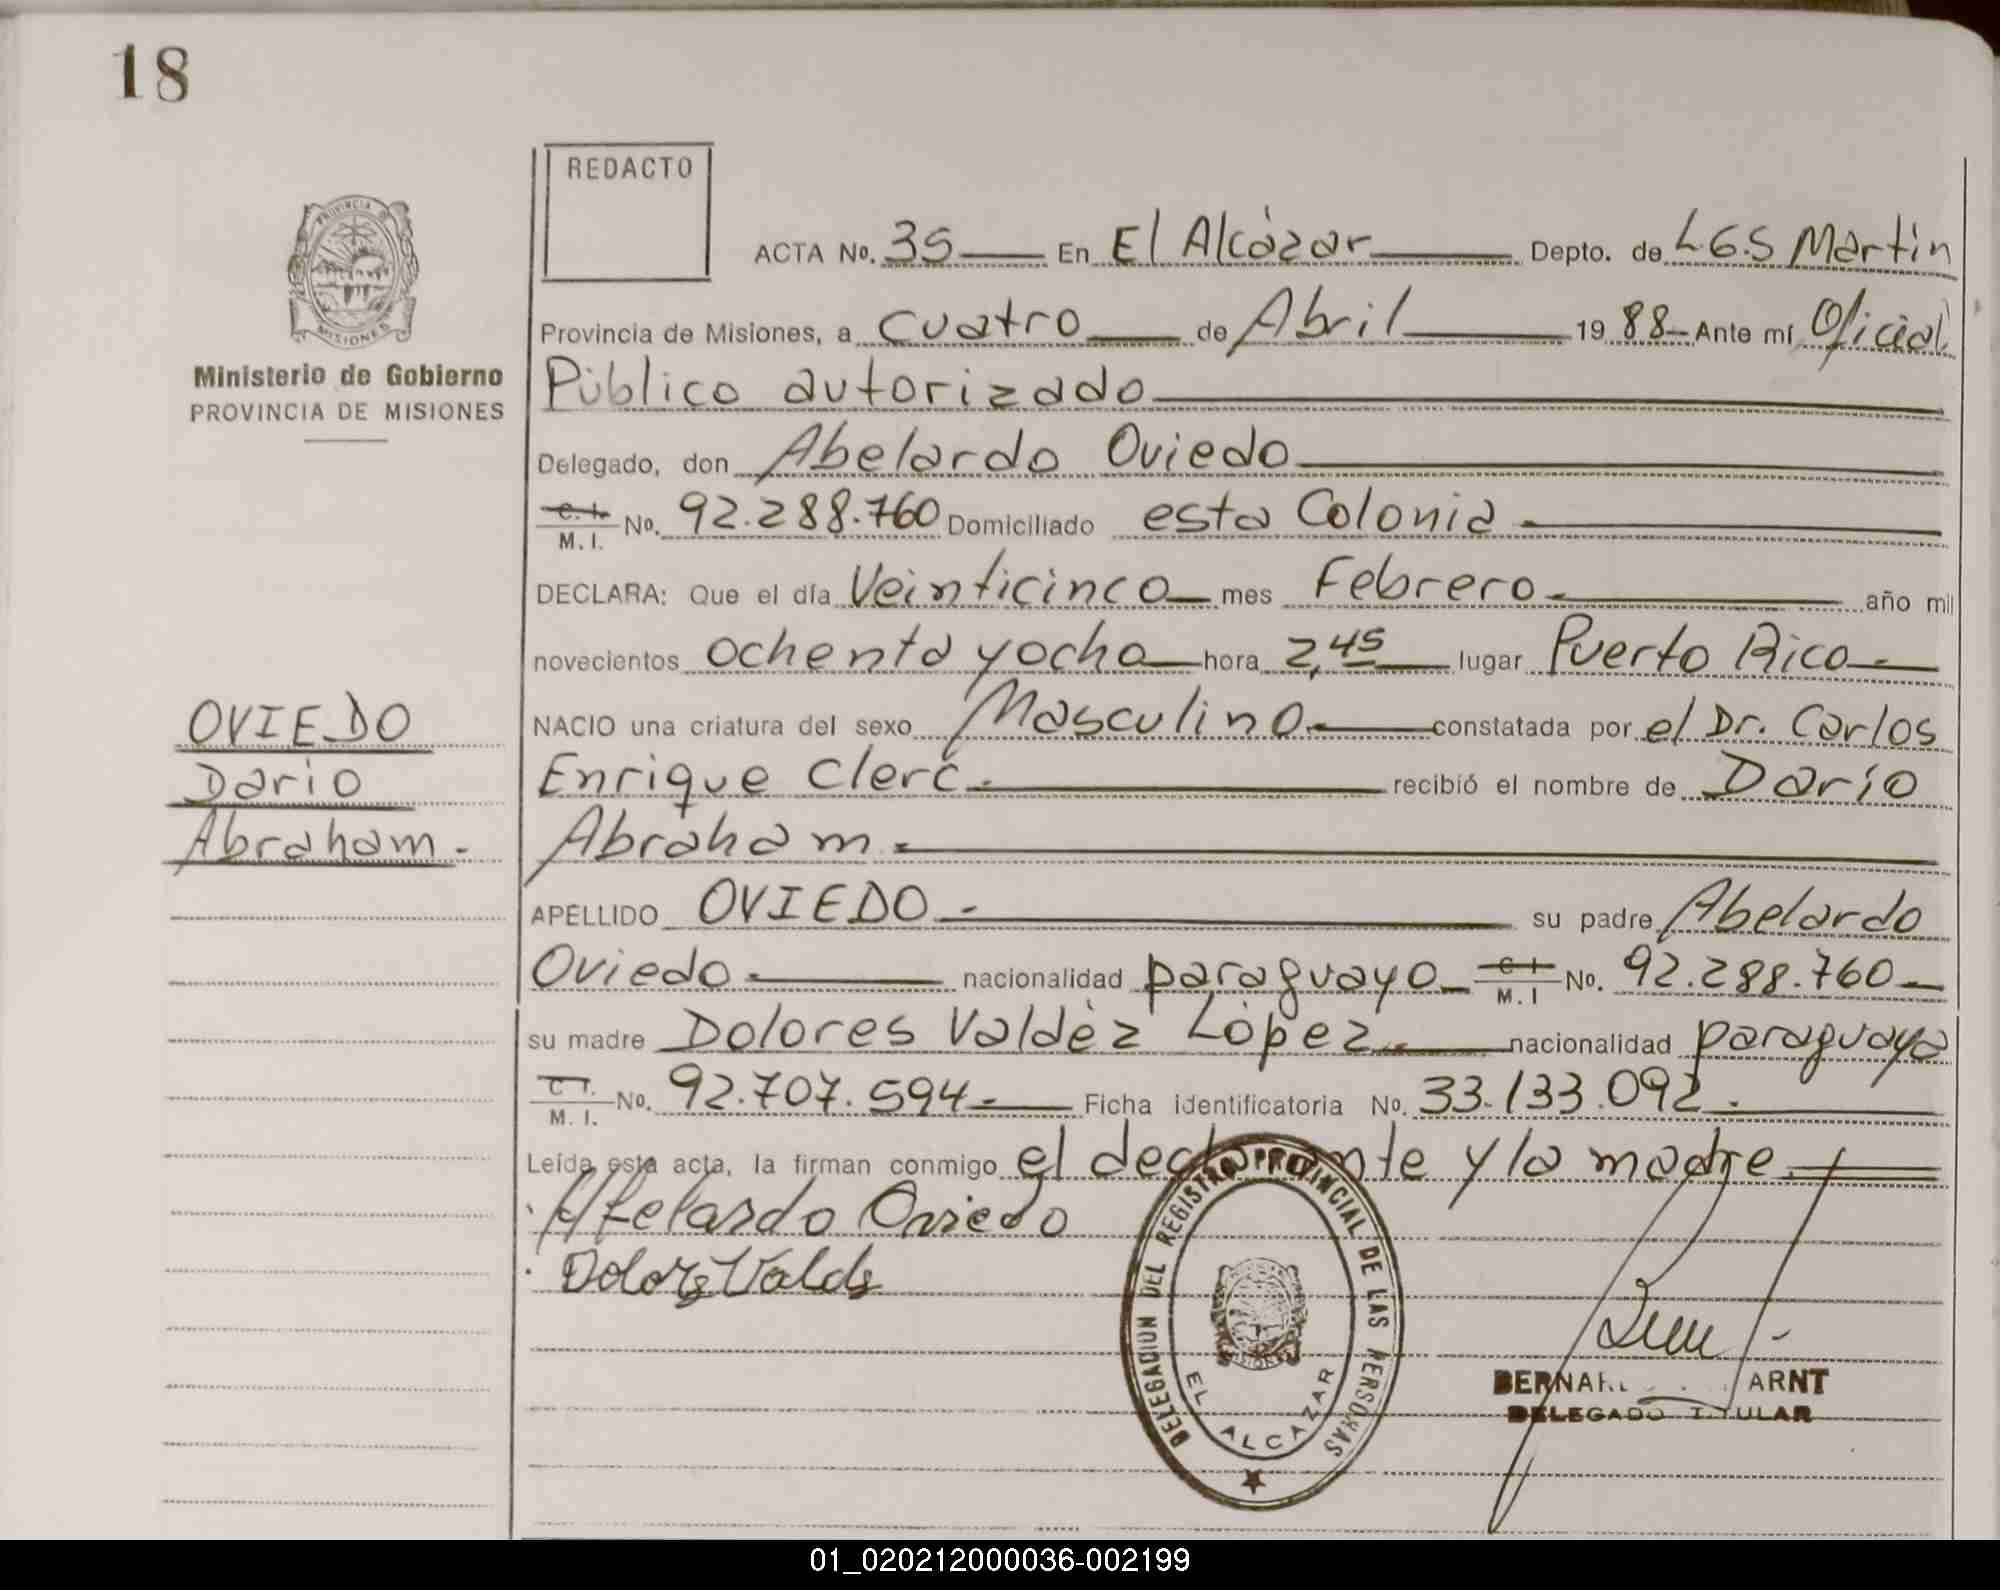 18
REDACTO
PROVINCIA D
MISIONES
Ministerio de Gobierno
PROVINCIA DE MISIONES
ACTA No. 35 En El Alcázar Depto. de L.G.S Martín
Provincia de Misiones, a cuatro de Abril 19 88 Ante mí Oficial
Público autorizado
Delegado, don Abelardo Oviedo
C. I. M. I. No. 92.288.760 Domiciliado esta Colonia
DECLARA: Que el día Veinticinco mes Febrero año mil
novecientos ochenta y ocho hora 2,45 lugar Puerto Rico
NACIO una criatura del sexo Masculino constatada por el Dr. Carlos
Enrique Clerc recibió el nombre de Darío
Abraham
APELLIDO OVIEDO su padre Abelardo
Oviedo nacionalidad paraguayo C I M. I No. 92.288.760
su madre Dolores Valdéz López nacionalidad paraguaya
C I. M. I. No. 92.707.594 Ficha identificatoria No. 33.133.092
Leída esta acta, la firman conmigo el declarante y la madre
OVIEDO
Dario
Abraham
Abelardo Oviedo
Dolores Valds
DELEGACION DEL REGISTRO PROVINCIAL DE LAS PERSONAS
MISIONES
EL ALCAZAR
ARNT
DELEGADO TITULAR
01_020212000036-002199